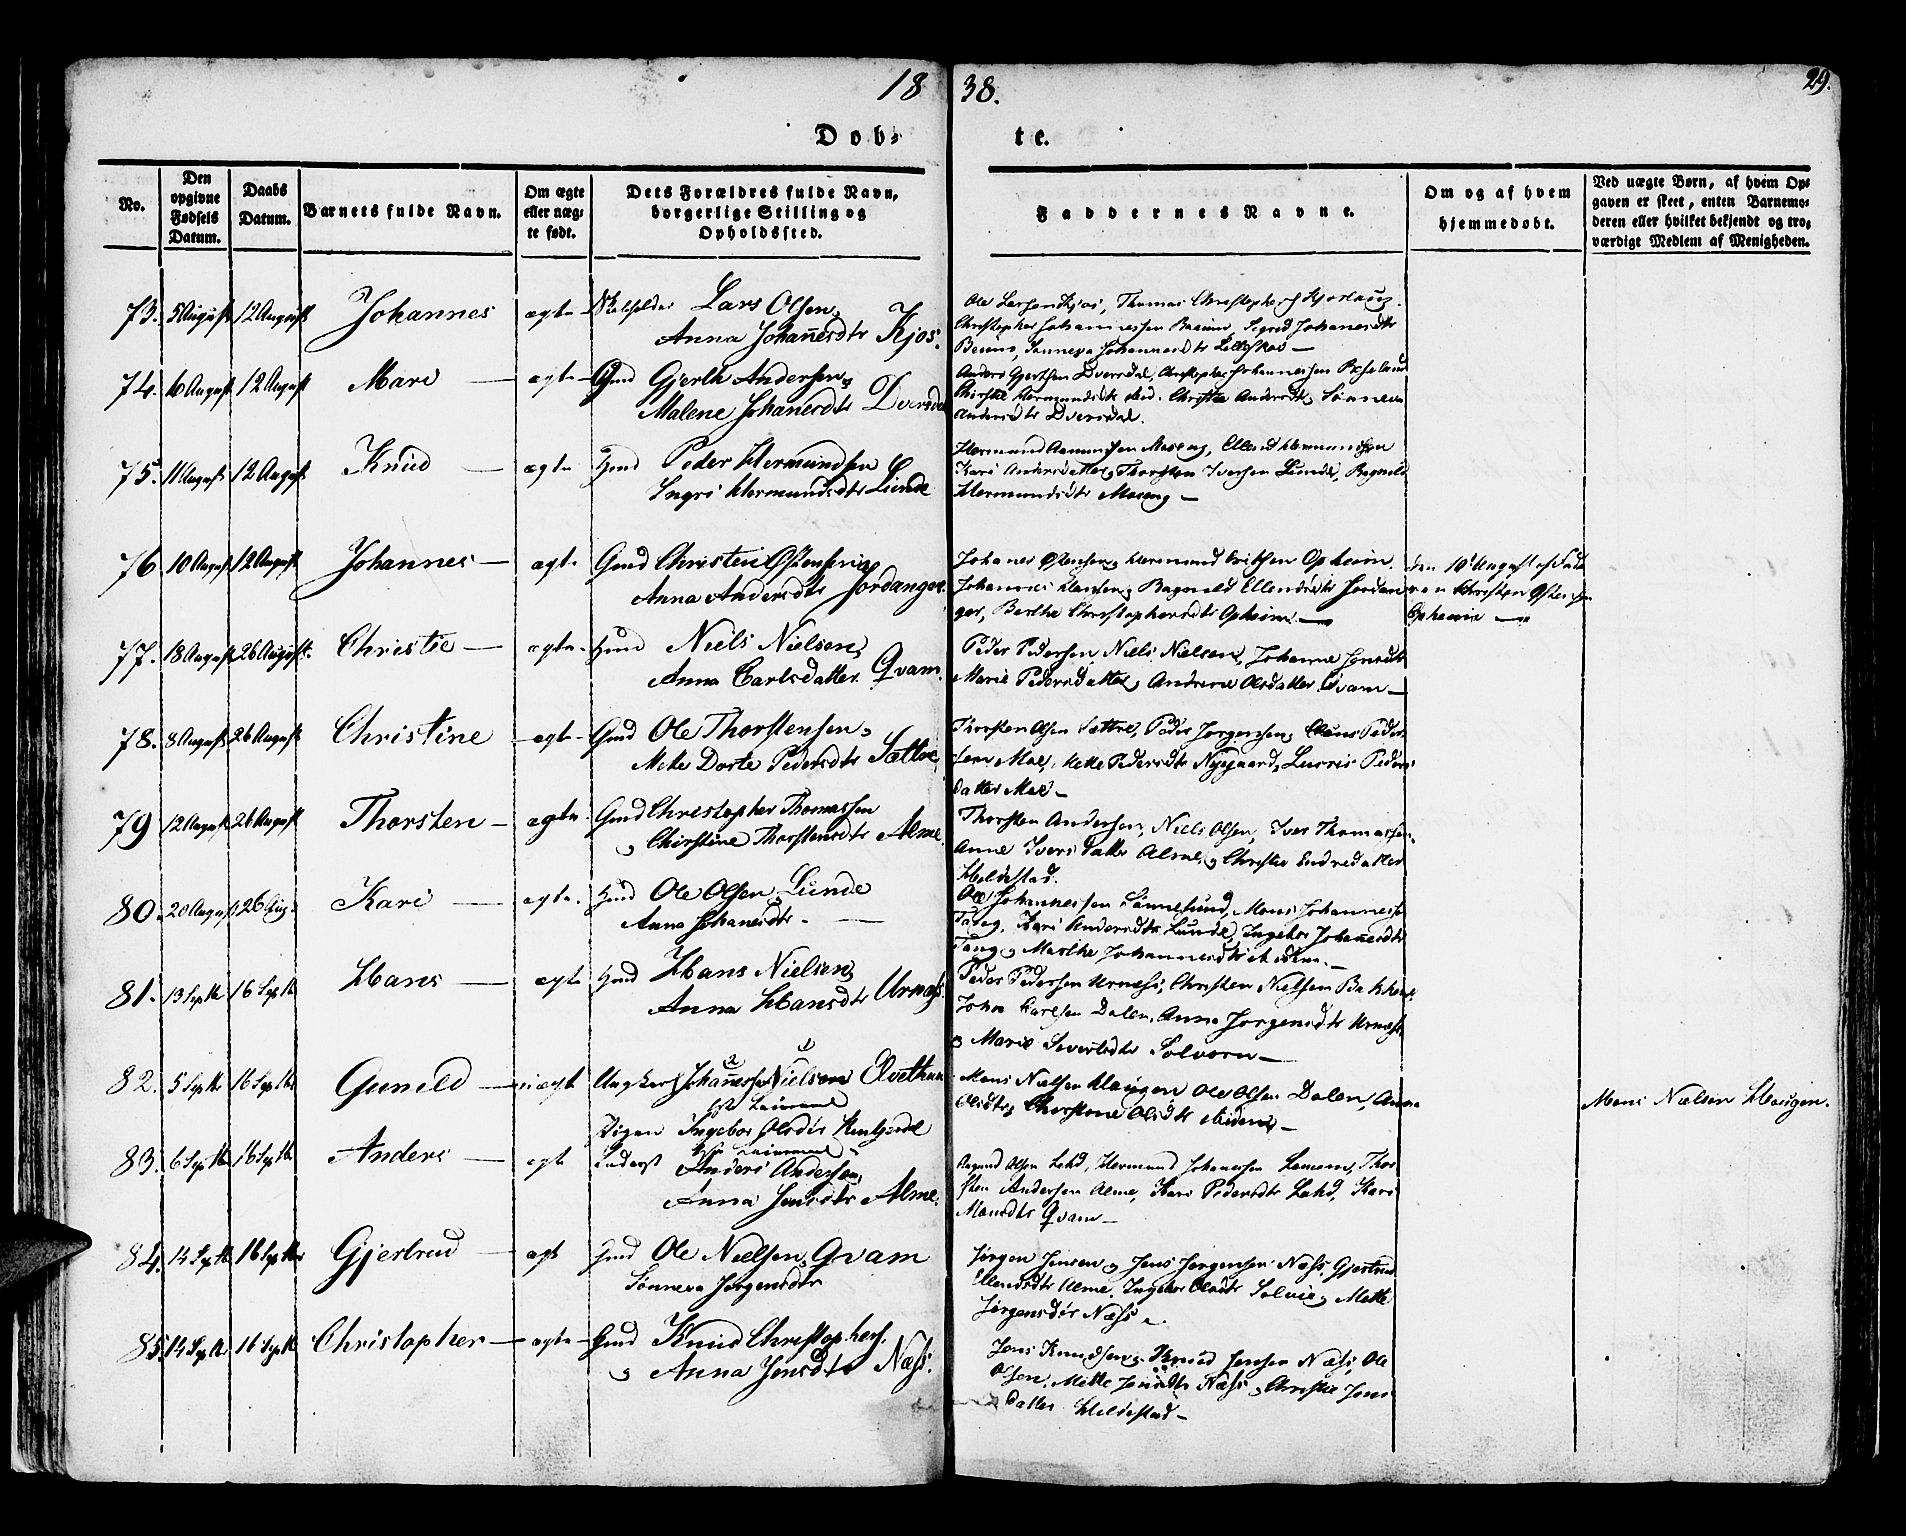 18 38.
29.
Døb- te.
No.
Den opgivne Fødsels Datum.
Daabs Datum.
Barnets fulde Navn.
Om ægte eller uæg- te født.
Dets Forældres fulde Navn, borgerlige Stilling og Opholdssted.
Faddernes Navne.
Om og af hvem hjemmedøbt.
Ved uægte Børn, af hvem Op- gaven er skeet, enten Barnemo- deren eller hvilket bekjendt og tro- værdigt Medlem af Menigheden.
73. 5 August 12 August Johannes ægte Lars Olsen,
Anna Johanesdtr Kjos.
Ole Larsen Kjos, Thomas
Christopher Johannessen Sigrid Johanesdtr
Johannesdtr
74. 6 August 12 August Mari — ægte Gmd Gjerth Andersen,
Malene Johanesdtr Dversdal
Anders Gjertsen Dversdal, Christopher Johannessen
Hermundsdtr ibid. Christie Andersdtr, Sønneva
Andersdtr Dversdal.
75. 11 August 12 August Knud — ægte Gmd Peder Hermundsen
Ingri Hermundsdtr Lunde
Hermund Aamundsen Moseng, Ellend Hermundsen
Kari Andersdatter, Thorsten Iversen Lunde, Ragnild
Hermundsdtr Moseng —
76 10 August 12 August Johannes — ægte Gmd Christen Østensen
Anna Andersdtr Jordanger.
Johanes Østensen, Hermund Opheim
Johannes Hansen, Ragnild Ellendsdtr Jordan
ger, Berthe Christophersdtr Opheim —
den 10 August af Fade
ren Christen Østensen
Opheim —
77. 18 August 26 August. Christie — ægte. Gmd Niels Nielsen,
Anna Carlsdatter Qvam.
Peder Pedersen, Niels Nielsen, Johanne Jensdtr
Marie Pedersdatter, Andrine Olsdatter Qvam —
78. 8 August 26 August Christine — ægte Gmd Ole Thorstensen,
Mette Dorte Pedersdtr Sættre
Thorsten Olsen Sættre, Peder Jørgensen, Peder
sen Moe, Mette Pedersdtr Nygaard, Peders
datter Moe —
79 12 August 26 August Thorsten — ægte Gmd Christopher Thomassen
Christine Thorstensdtr Alme.
Thorsten Andersen, Niels Olsen, Iver Thomassen
Anne Ivers datter Alme, Christie Endredatter
Heldestad.
80. 20 August 26 Aug. Kari — ægte. Gmd Ole Olsen Lunde
Anna Johanesdtr. —
Ole Johannessen Mons Johannessen
Tang, Kari Andersdtr Lunde, Ingebor Johanesdtr
Tang, Marthe Johannesdtr
81. 13 Septbr 16 Septbr Hans — ægte Gmd Hans Nielsen,
Anna Hansdtr Urnæs
Peder Pedersen Urnæss, Christen Nielsen Bakken
Johan Carlsen Dalen, Anna Jørgensdtr Urnæss
Marie Siversdtr Solvorn —
82. 5 Septbr 16 Septbr Gunild — uægt Ungkarl Johannes Nielsen
Pigen Ingebor Olsdtr
Mons Nielsen Haugen Ole Olsen Dalen, Anna
Olsdtr, Olsdtr
Mons Nielsen Haugen.
83. 6 Septbr 16 Septbr Anders — ægt Anders Andersen,
Anna Jensdtr Alme.
Hermund Johanessen Thor
sten Andersen Alme, Kari Pedersdtr Kari
Monsdtr Qvam —
84. 14 Septbr 16 Septbr Gjertrud — ægt Gmd Ole Nielsen, Qvam
Sønneva Jørgensdtr
Jørgen Jensen, Jens Jørgensen Næss Gjertrud
Ellendsdtr Alme. Ingebor Mette
Jørgensdtr Næss.
85. 14 Septbr 16 Septbr Christopher — ægte Gmd Knud Christophers.
Anna Jensdtr Næss.
Jens Knudsen, Knud Jensen Næss, Ole
Olsen, Mette Jensdtr Næss, Christie Jens
datter Heldestad —